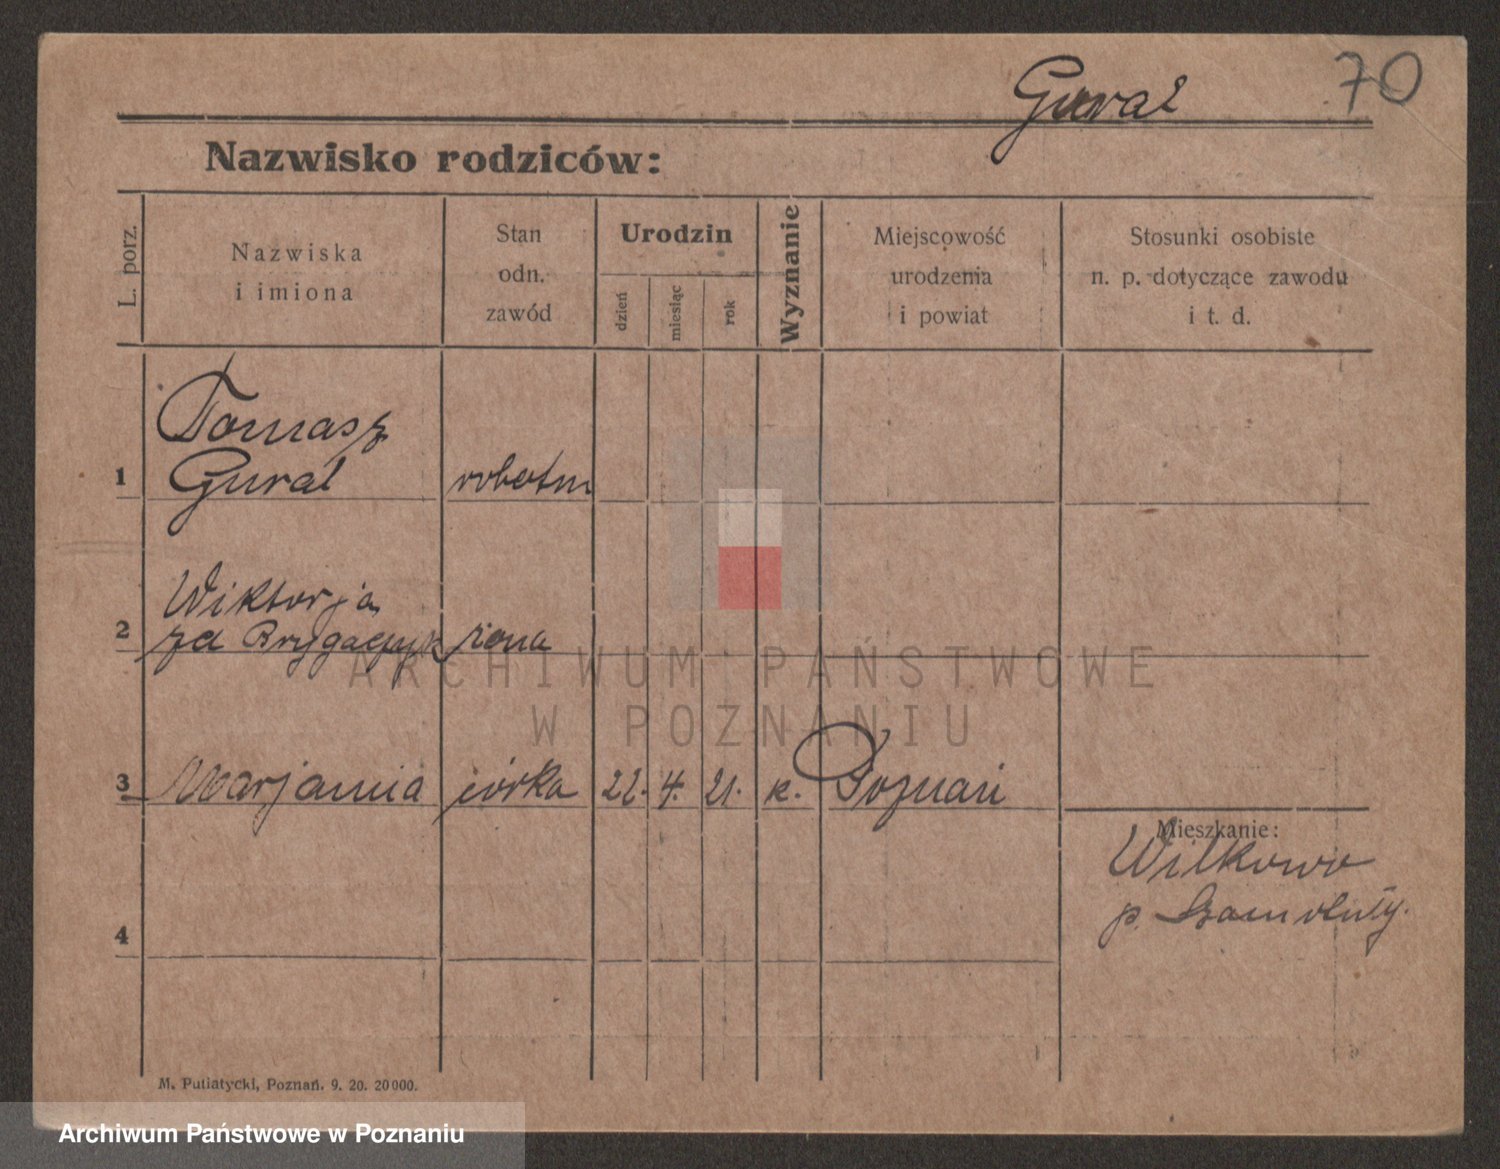 Gurał 70
Nazwisko rodziców:
L. porz.
Nazwiska
i imiona
Stan
odn.
zawód
Urodzin
dzień
miesiąc
rok
Wyznanie
Miejscowość
urodzenia
i powiat
Stosunki osobiste
n. p. dotyczące zawodu
i t. d.
Tomasz
1 Gurał robotn
Wiktorja
2 za żona
3 Marjanna córka 22. 4. 21. k. Poznań
Mieszkanie:
Wilkowo
p. Szamotuły.
4
M. Putiatycki, Poznań. 9. 20. 20000.
ARCHIWUM PAŃSTWOWE
W POZNANIU
Archiwum Państwowe w Poznaniu